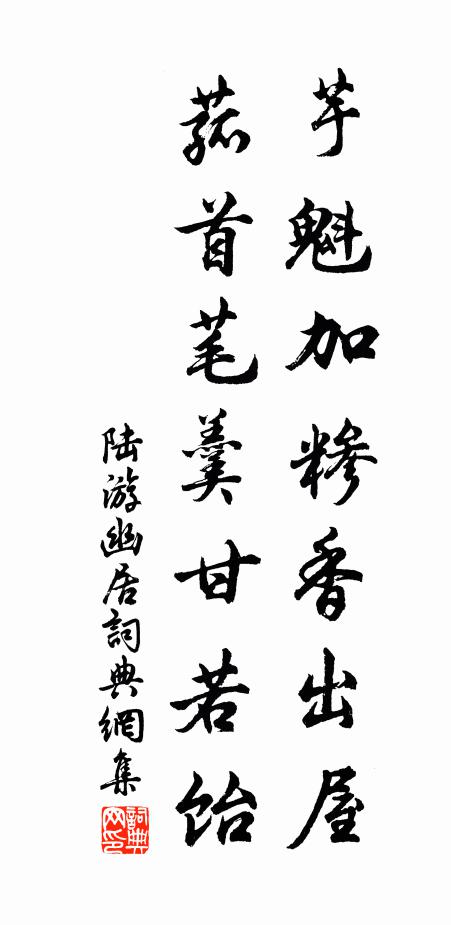 芋魁加糝香出屋
菰首芼羹甘若飴
陆游幽居詞典網集
詞典网印